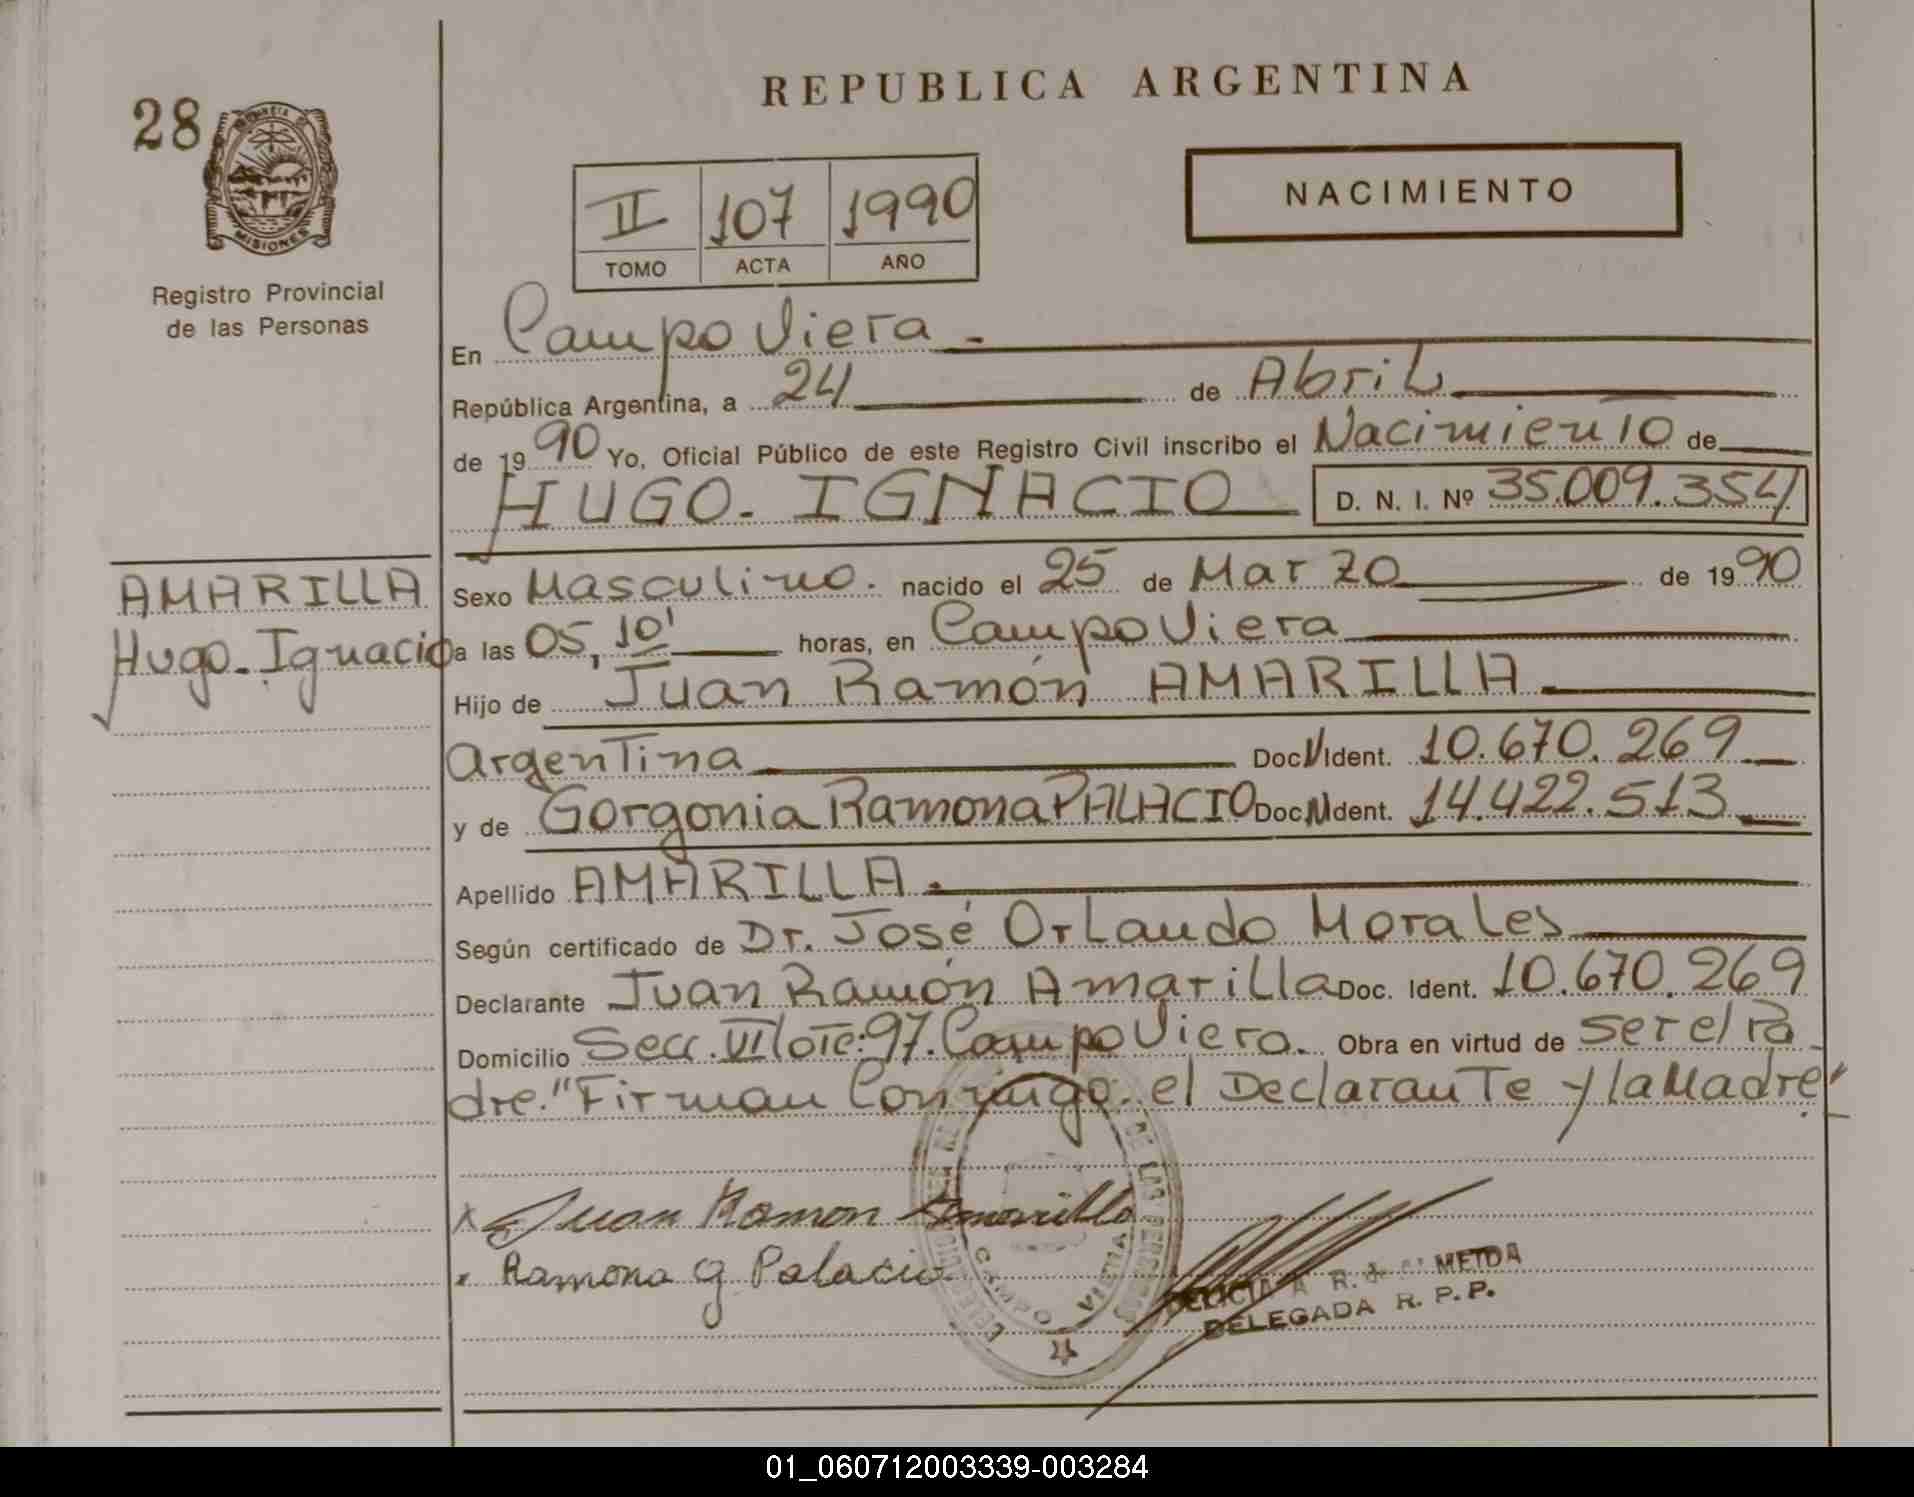 REPUBLICA ARGENTINA
28
MISIONES
Registro Provincial
de las Personas
II 107 1990
TOMO ACTA AÑO
NACIMIENTO
En Campo Viera.
República Argentina, a 24 de Abril
de 1990 Yo, Oficial Público de este Registro Civil inscribo el Nacimiento de
HUGO - IGNACIO D. N. I. Nº 35.009.354
AMARILLA
Hugo - Ignacio
Sexo Masculino. nacido el 25 de Marzo de 1990
a las 05,10' horas, en Campo Viera
Hijo de Juan Ramón AMARILLA.
Argentina Doc. Ident. 10.670.269
y de Gorgonia Ramona PALACIO Doc. Ident. 14.422.513
Apellido AMARILLA.
Según certificado de Dr. José Orlando Morales
Declarante Juan Ramón Amarilla Doc. Ident. 10.670.269
Domicilio Secc. VII lote: 97. Campo Viera. Obra en virtud de ser el Pa
dre. "Firman Conmigo: el Declarante y la Madre"
x Juan Ramon Amarilla
Ramona G Palacio
DE LAS PERSONAS
CAMPO VIERA
DELEGADA R. P. P.
01_060712003339-003284